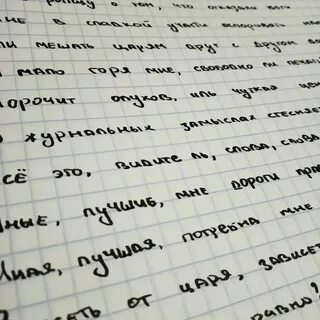 ропщу о том, что отказали боги
НЕ В сладкой участи оспоривать на
ли мешать царям друг с другом во
мало горя мне, свободно ли печа
орочит олухов, иль чуткая цен
журнальных замыслах стесняе
сё это, видите ль, слова, слова,
ные, лучшие, мне дороги пра
Иная, лучшая, потребна мне
сеть от царя, зависе
равно?